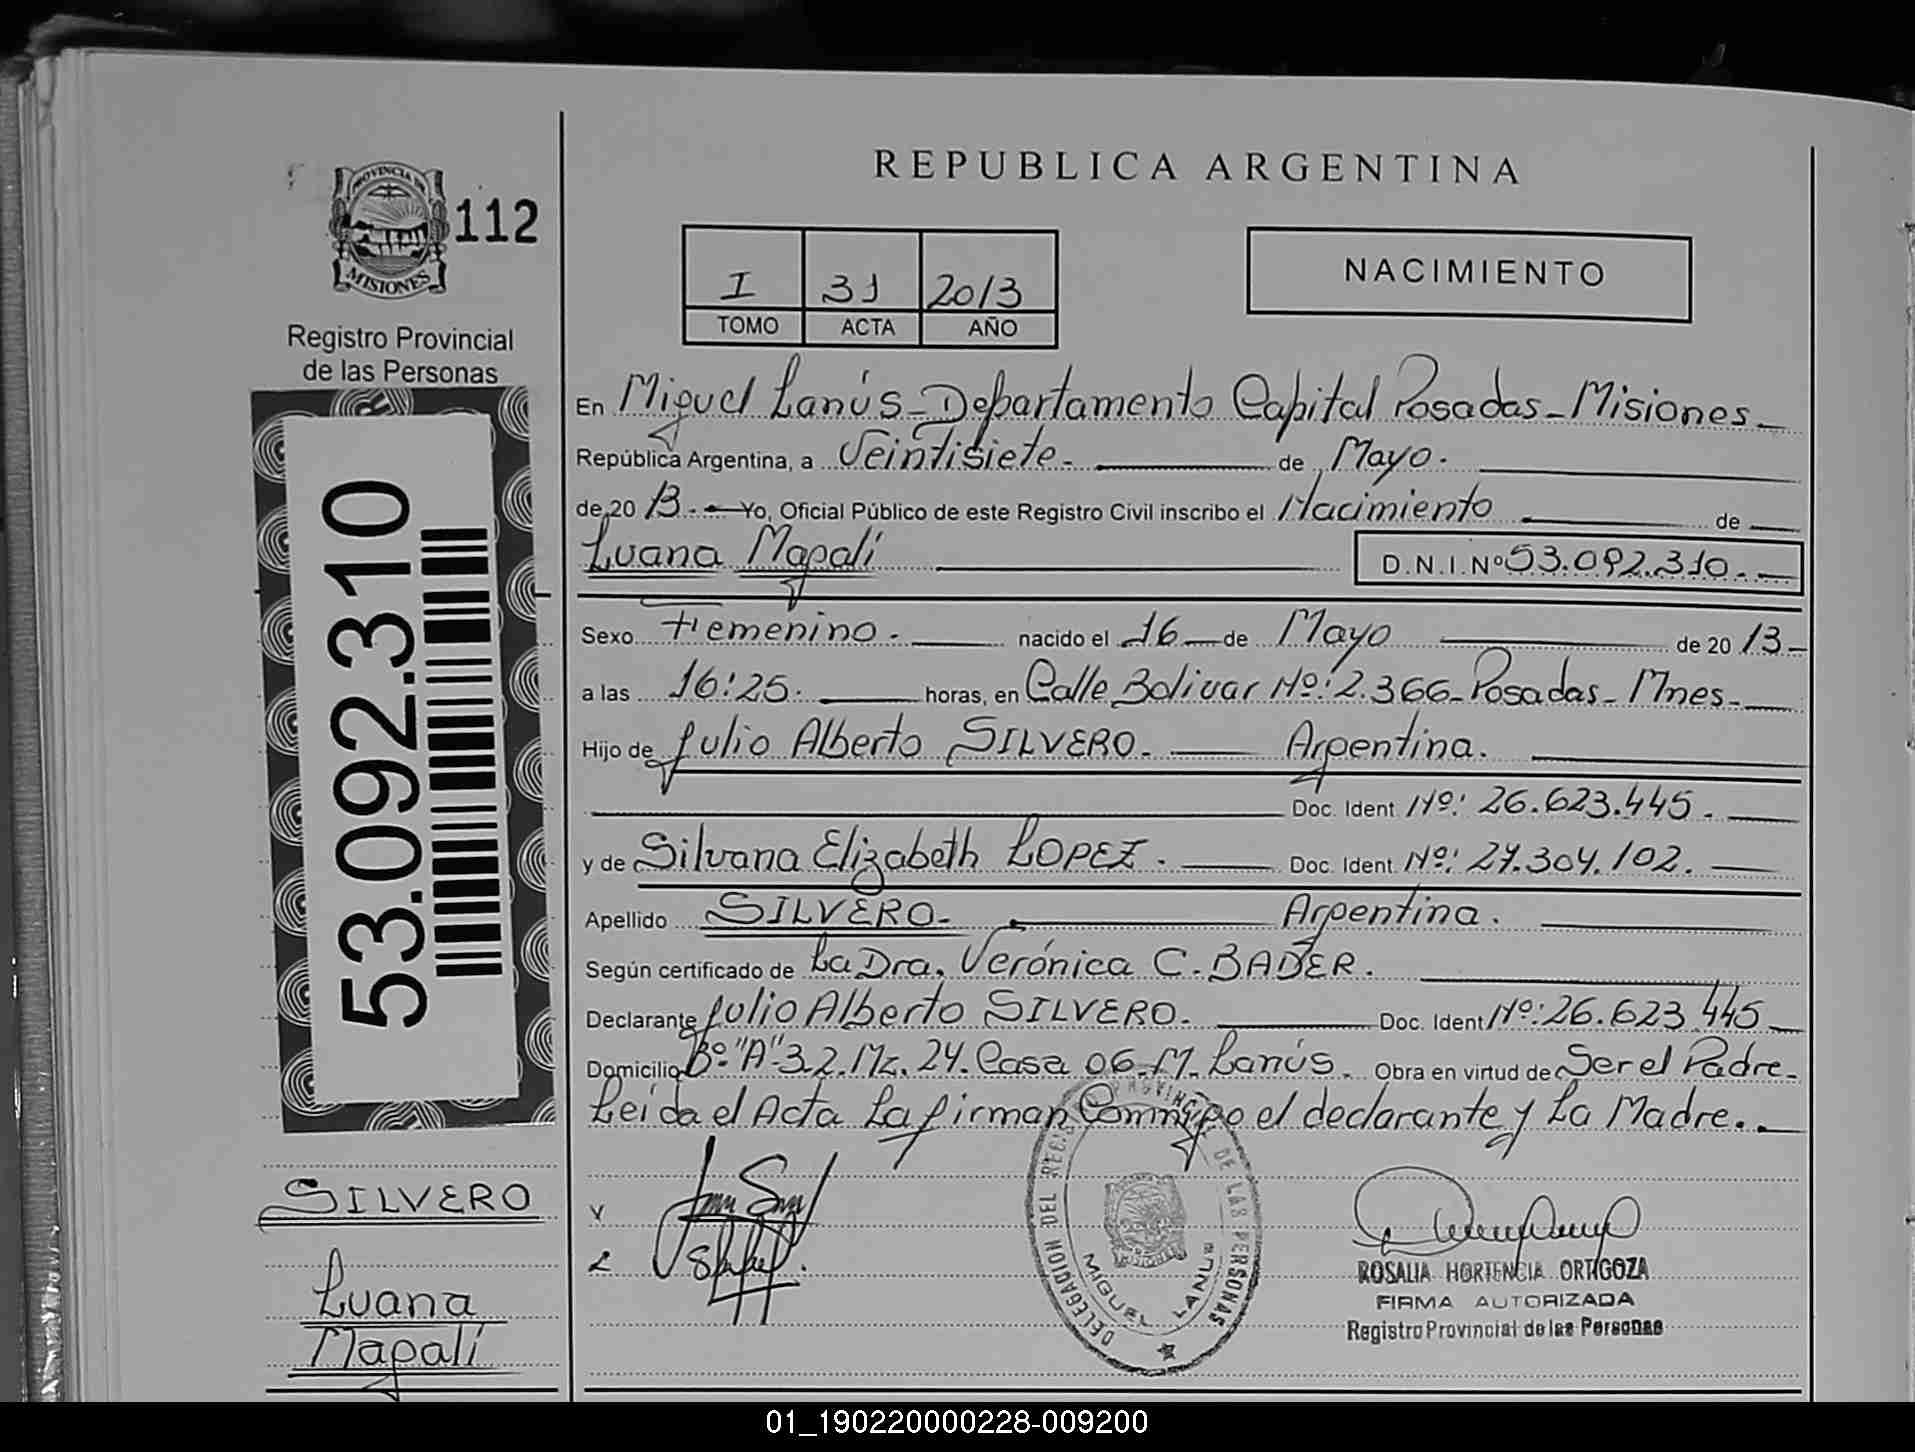 PROVINCIA DE
MISIONES
112
Registro Provincial
de las Personas
53.092.310
SILVERO
Luana
Magalí
REPUBLICA ARGENTINA
I 31 2013
TOMO ACTA AÑO
NACIMIENTO
En Miguel Lanús - Departamento Capital Posadas - Misiones -
República Argentina, a Veintisiete - de Mayo.
de 20 13.- Yo, Oficial Público de este Registro Civil inscribo el Nacimiento de
Luana Magalí D.N.I. Nº 53.092.310.-
Sexo Femenino. nacido el 16 de Mayo de 20 13-
a las 16:25. horas, en Calle Bolivar Nº: 2.366 - Posadas - Mnes -
Hijo de Julio Alberto SILVERO. Argentina.
Doc. Ident Nº: 26.623.445.
y de Silvana Elizabeth LOPEZ. Doc. Ident. Nº: 27.304.102.
Apellido SILVERO. Argentina.
Según certificado de La Dra. Verónica C. BADER.
Declarante Julio Alberto SILVERO. Doc. Ident Nº: 26.623.445
Domicilio Bº "A" 3.2. Mz. 24. Casa 06 - M. Lanús. Obra en virtud de Ser el Padre.
Leída el Acta La firman Conmigo el declarante y La Madre.
DELEGACION DEL REGISTRO PROVINCIAL DE LAS PERSONAS
MIGUEL LANUS
ROSALIA HORTENCIA ORTIGOZA
FIRMA AUTORIZADA
Registro Provincial de las Personas
01_190220000228-009200